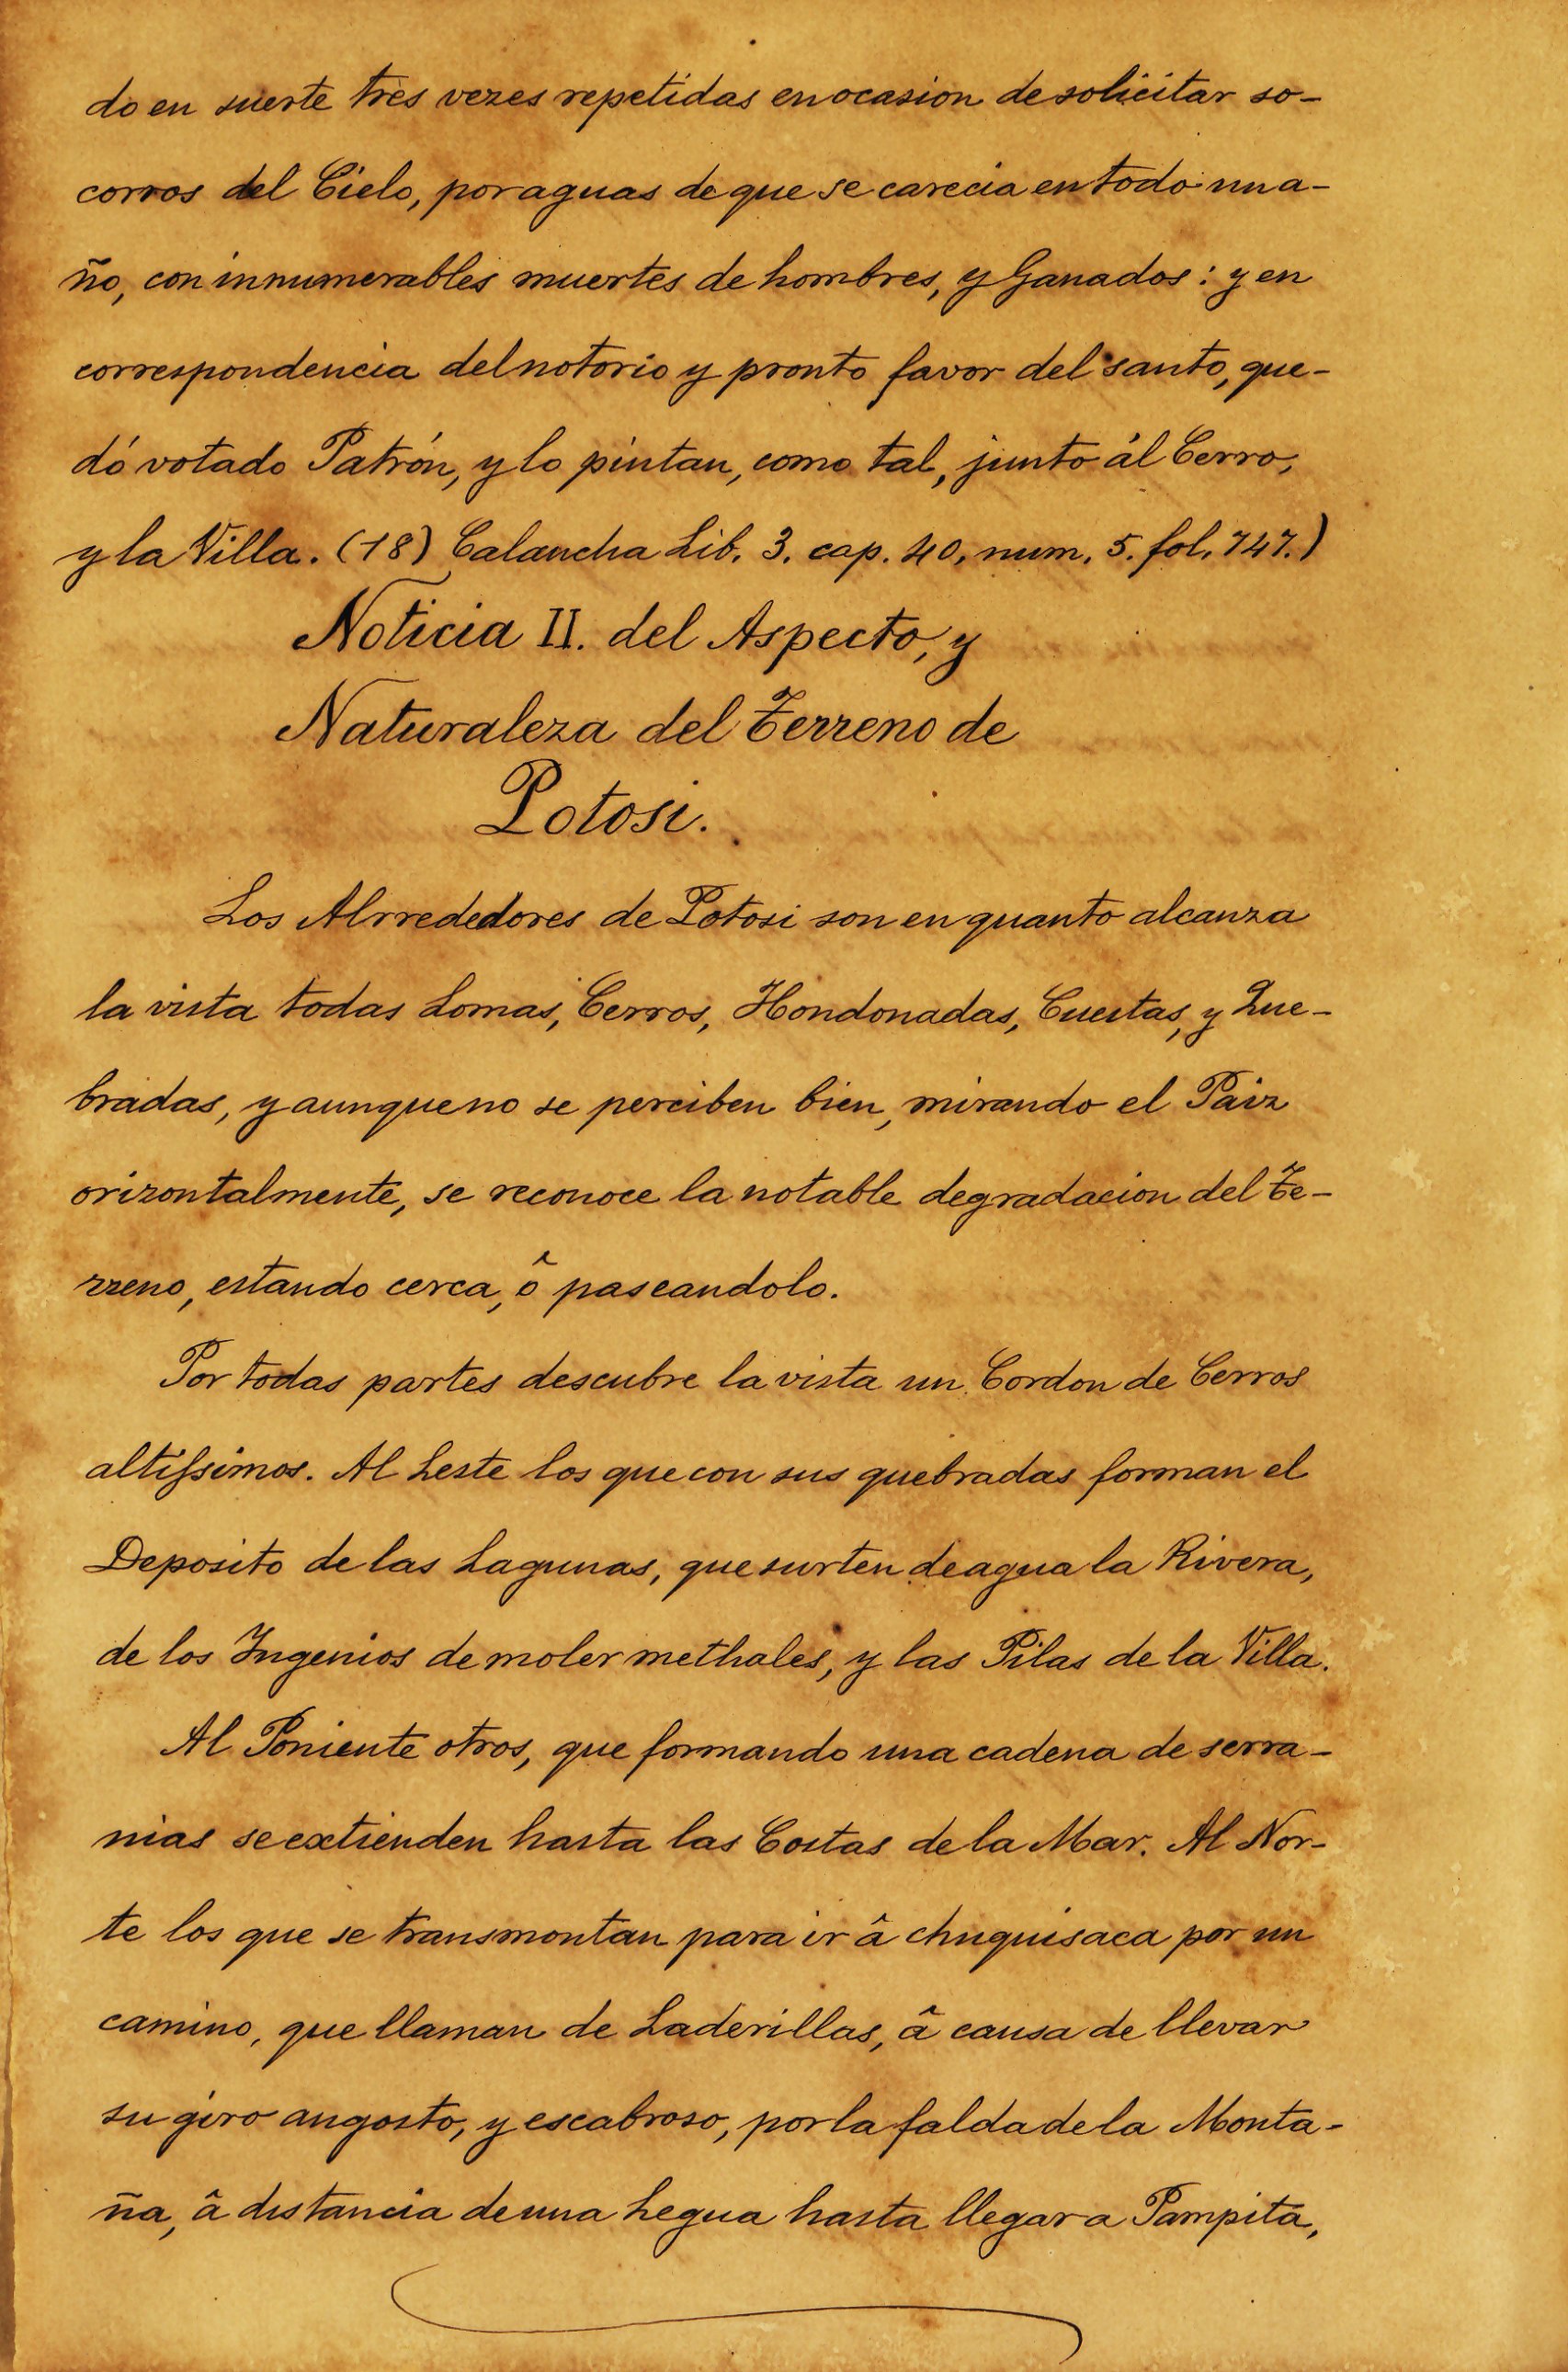 do en suerte tres vezes repetidas en ocasion de solicitar so-
corros del Cielo, por aguas de que se carecia en todo un a-
ño, con innumerables muertes de hombres, y Ganados: y en
correspondencia del notorio y pronto favor del santo, que-
dó votado Patrón, y lo pintan, como tal, junto ál Cerro,
y la Villa. (18) Calancha Lib. 3. cap. 40, num. 5. fol. 747.)
Noticia II. del Aspecto, y
Naturaleza del Terreno de
Potosi.
Los Alrrededores de Potosi son en quanto alcanza
la vista todas Lomas, Cerros, Hondonadas, Cuestas, y Que-
bradas, y aunque no se perciben bien, mirando el Paiz
orizontalmente, se reconoce la notable degradacion del Te-
rreno, estando cerca, ô paseandolo.
Por todas partes descubre la vista un Cordon de Cerros
altissimos. Al Leste los que con sus quebradas forman el
Deposito de las Lagunas, que surten de agua la Rivera,
de los Ingenios de moler methales, y las Pilas de la Villa.
Al Poniente otros, que formando una cadena de serra-
nias se extienden hasta las Costas de la Mar. Al Nor-
te los que se transmontan para ir â chuquisaca por un
camino, que llaman de Laderillas, â causa de llevar
su giro angosto, y escabroso, por la falda de la Monta-
ña, â distancia de una Legua hasta llegar a Pampita,